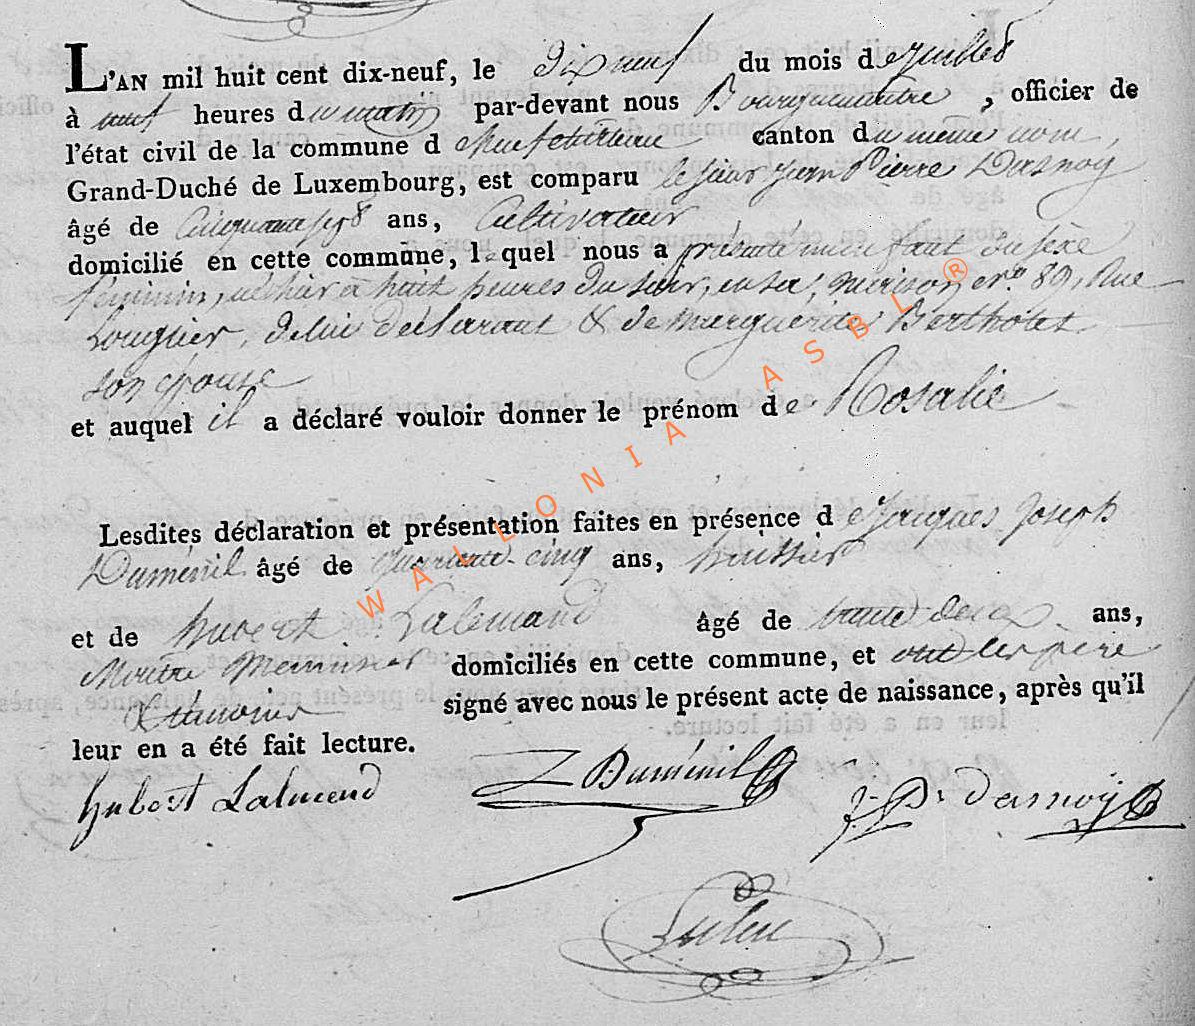 L'AN mil huit cent dix-neuf, le dix neuf du mois de juillet
à neuf heures du matin par-devant nous Bourguemaitre, officier de
l'état civil de la commune de Neufchateau canton du même nom,
Grand-Duché de Luxembourg, est comparu le sieur Jean Pierre Dasnoy
âgé de Cinquante sept ans, Cultivateur
domicilié en cette commune, lequel nous a présenté un enfant du sexe
féminin, né hier à huit heures du soir, en sa maison nro 89, Rue
de lui déclarant & de Marguerite Bertholet
son épouse
et auquel il a déclaré vouloir donner le prénom de Rosalie
Lesdites déclaration et présentation faites en présence de Jacques Joseph
Duménil âgé de quarante-cinq ans, huissier
et de hubert Lalemand âgé de trente deux ans,
Maitre Menuisier domiciliés en cette commune, et ont les père
& témoins signé avec nous le présent acte de naissance, après qu'il
leur en a été fait lecture.
hubert Lalmend Duménil J. P. dasnoy
WALLONIA ASBL ®